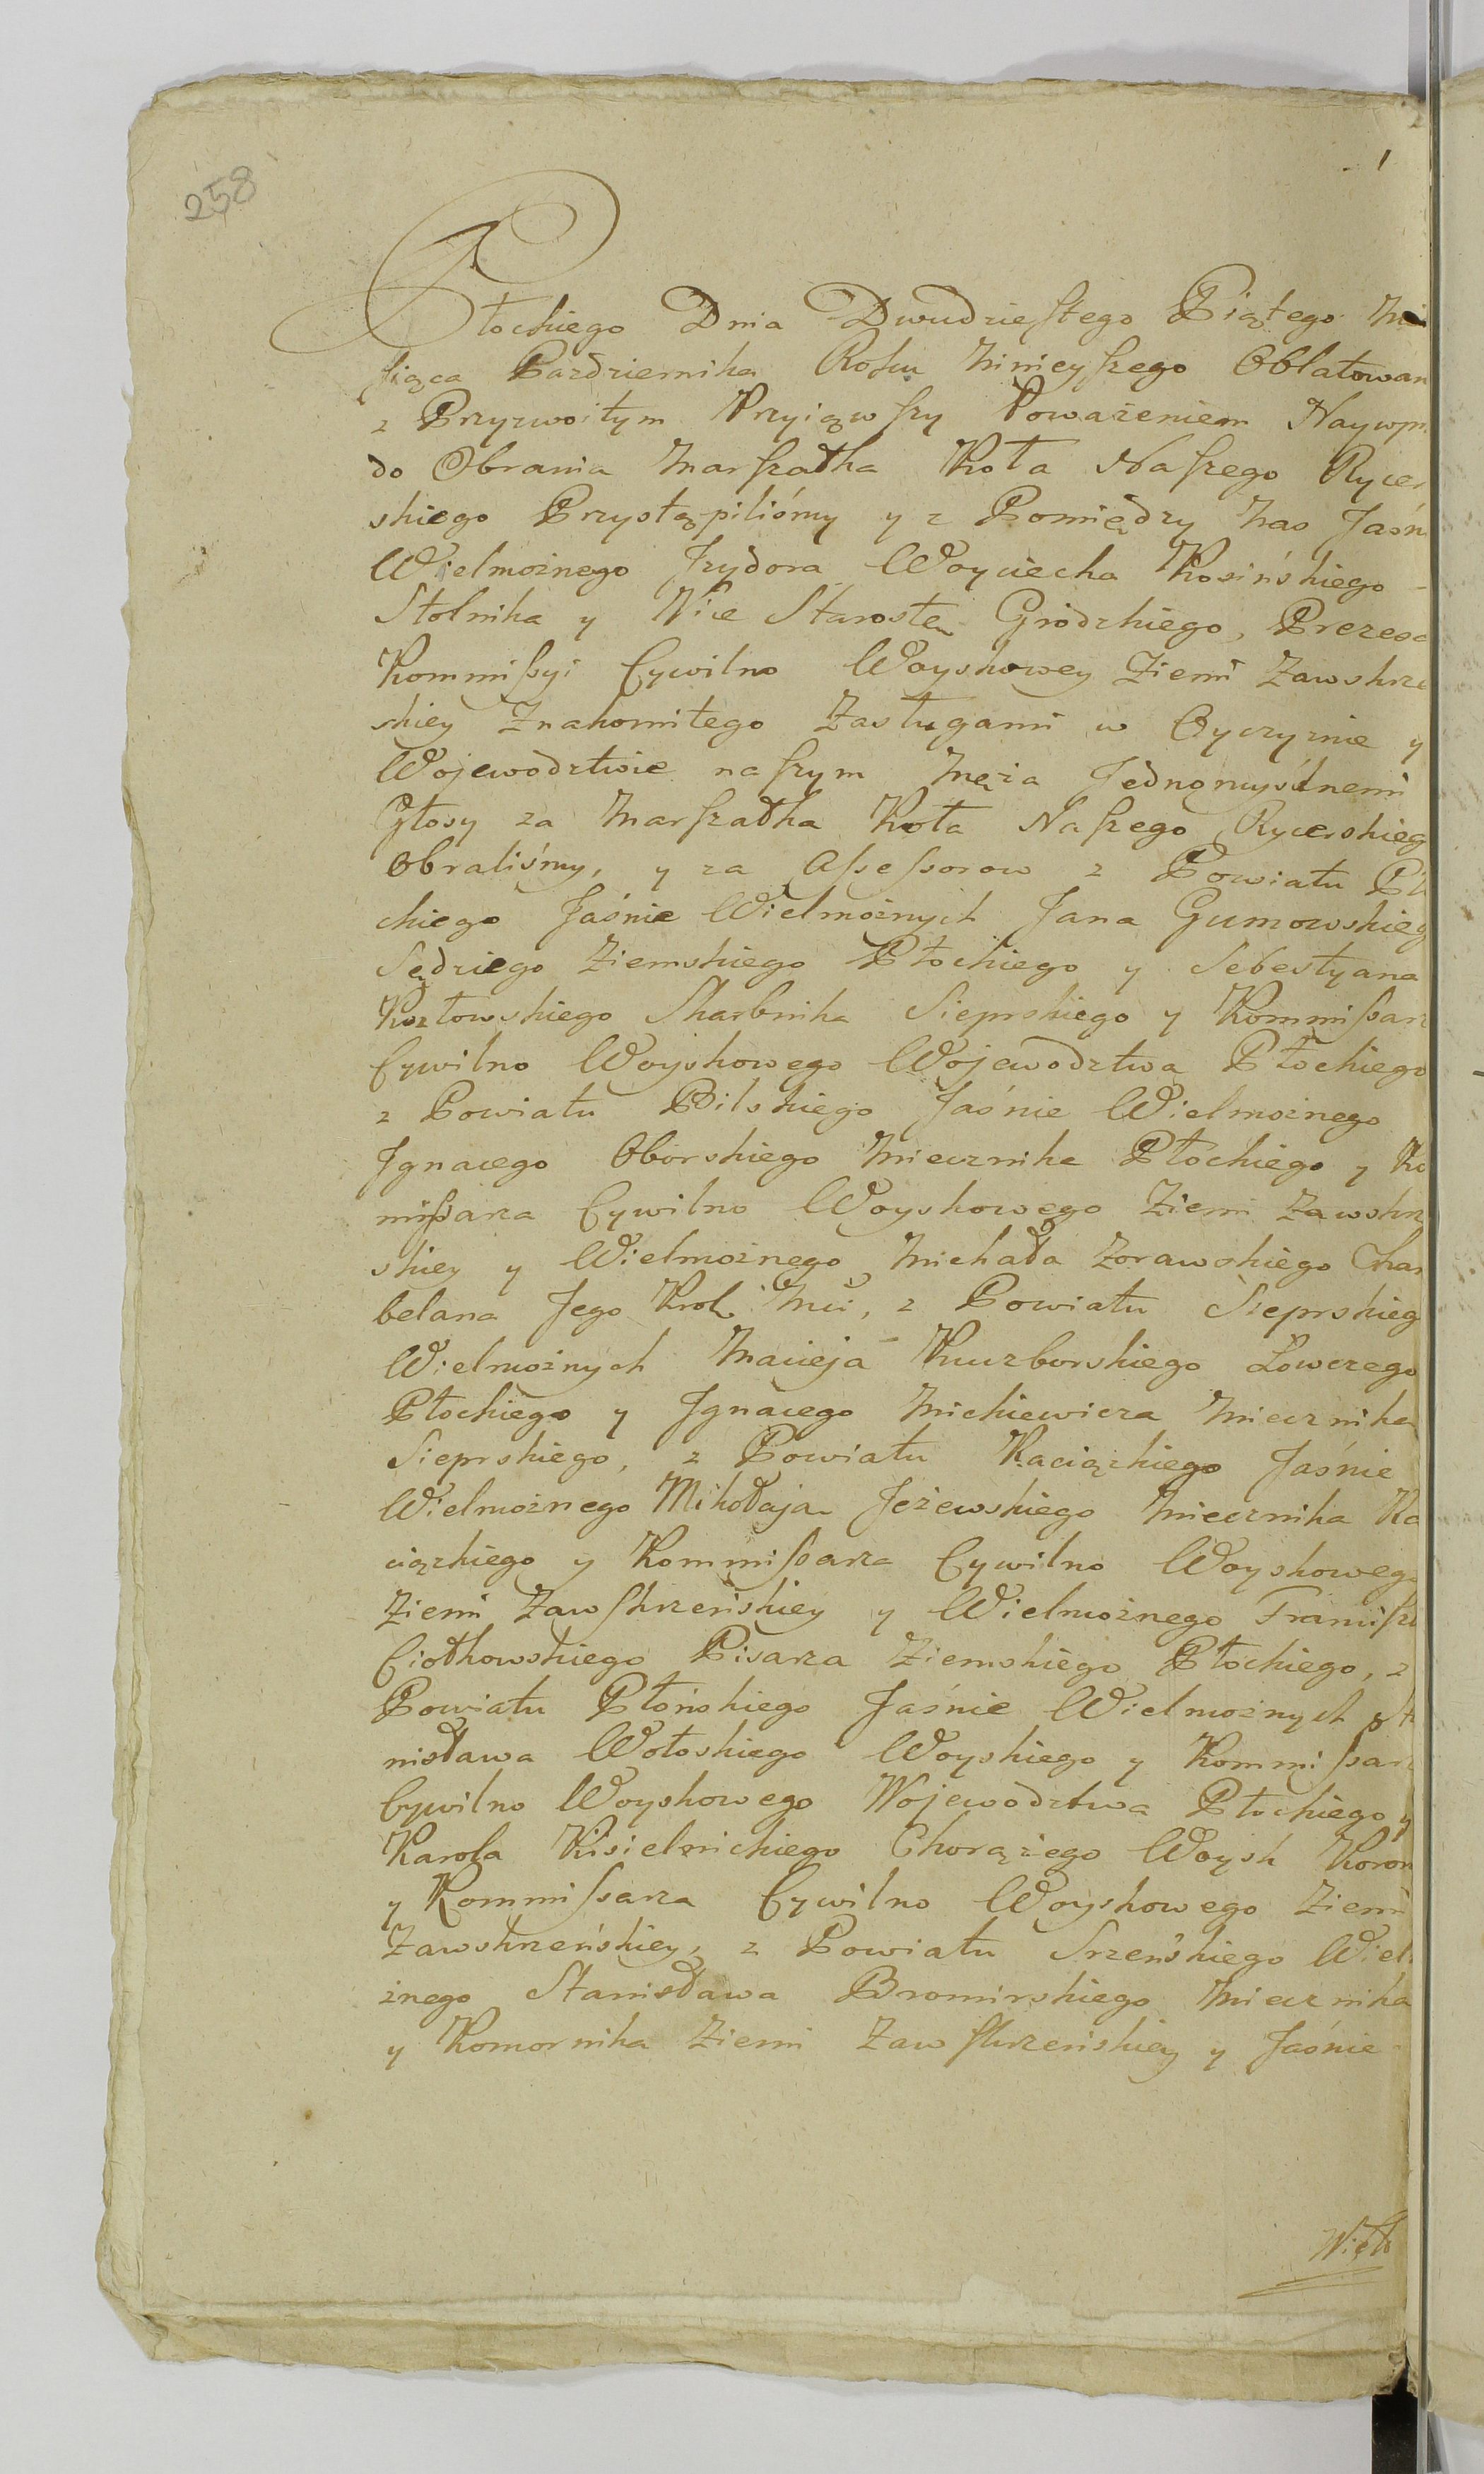 258
1
Płockiego Dnia Dwudziestego Piątego Mie
siąca Pazdziernika Roku Ninieyszego Oblatowan
z Przyzwoitym Przyiąwszy Poważeniem Naywpr
do Obrania Marszałka Koła Naszego Rycer
skiego Przystąpiliśmy y z Pomiędzy Nas Jaśn
Wielmożnego Jzydora Woyciecha Kosińskiego
Stolnika y Vice Starostę Grodzkiego, Prezesa
Kommissyi Cywilno Woyskowey Ziemi Zawskrze
skiey Znakomitego Zasługami w Oyczyznie y
Wojewodztwie naszym Męża Jednomyślnemi
Głosy za Marszałka Koła Naszego Rycerskieg
Obraliśmy, y za Assessorow z Powiatu Pło
ckiego Jaśnie Wielmożnych Jana Gumowskieg
Sędziego Ziemskiego Płockiego y Sebestyana
Kozłowskiego Skarbnika Sieprskiego y Kommissarz
Cywilno Woyskowego Wojewodztwa Płockiego
z Powiatu Bilskiego Jaśnie Wielmożnego
Jgnacego Oborskiego Miecznika Płockiego y Ko
missarza Cywilno Woyskowego Ziemi Zawskrz
skiey y Wielmożnego Michała Zorawskiego Cham
belana Jego Krol Mci, z Powiatu Sieprskieg
Wielmożnych Macieja Kuczborskiego Łowczego
Płockiego y Jgnacego Mickiewicza Miecznika
Sieprskiego, z Powiatu Raciązkiego Jaśnie
Wielmożnego Mikołaja Jeżewskiego Miecznika Ra
ciązkiego y Kommissarza Cywilno Woyskowego
Ziemi Zawskrzeńskiey y Wielmożnego Franciszk
Ciołkowskiego Pisarza Ziemskiego Płockiego, z
Powiatu Płońskiego Jaśnie Wielmożnych Sta
nisława Wołoskiego Woyskiego y Kommissarz
Cywilno Woyskowego Wojewodztwa Płockiego y
Karola Kisielnickiego Chorążego Woysk Koron
y Kommissarza Cywilno Woyskowego Ziemi
Zawskrzeńskiey, z Powiatu Srzeńskiego Wiel
żnego Stanisława Bromirskiego Miecznika
y Komornika Ziemi Zawskrzeńskiey y Jaśnie